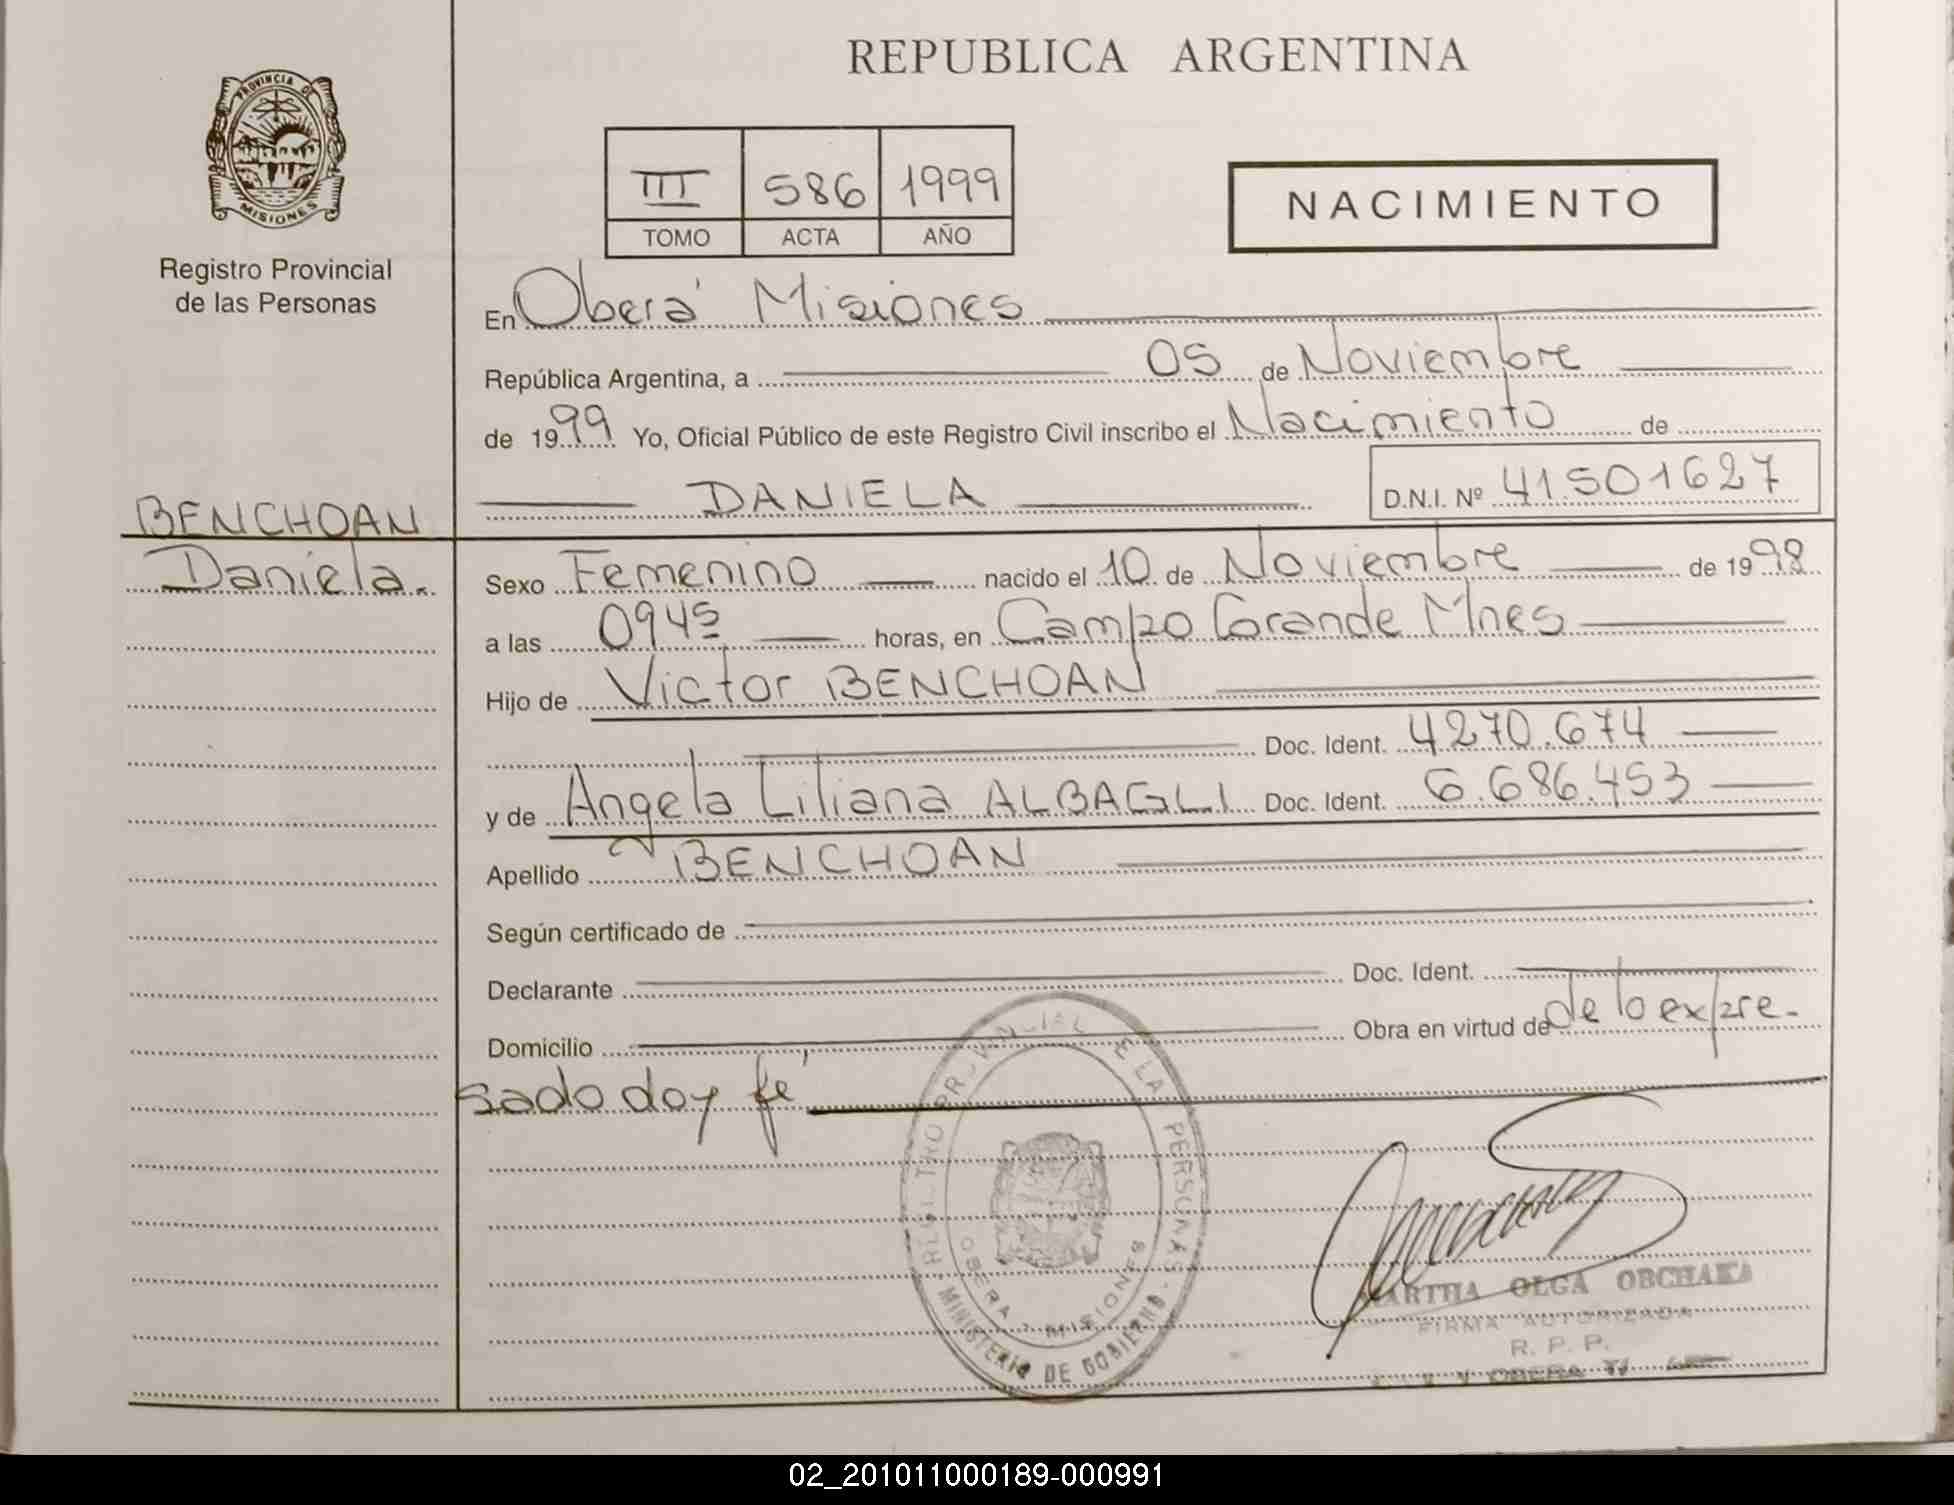 REPUBLICA ARGENTINA
PROVINCIA DE
MISIONES
Registro Provincial
de las Personas
III 586 1999
TOMO ACTA AÑO
NACIMIENTO
En Oberá Misiones
República Argentina, a 05 de Noviembre
de 1999 Yo, Oficial Público de este Registro Civil inscribo el Nacimiento de
DANIELA D.N.I. Nº 41.501627
BENCHOAN
Daniela.
Sexo Femenino nacido el 10 de Noviembre de 1998
a las 0945 horas, en Campo Grande Mnes
Hijo de Victor BENCHOAN
Doc. Ident. 4270.674
y de Angela Liliana ALBAGLI Doc. Ident. 6.686.453
Apellido BENCHOAN
Según certificado de
Declarante Doc. Ident.
Domicilio Obra en virtud de de lo expre-
sado doy fé
PERSONAS
OBERA - MISIONES
MINISTERIO DE GOBIERNO
MARTHA OLGA OBCHAKA
FIRMA AUTORIZADA
R. P. P.
OBERA
02_201011000189-000991